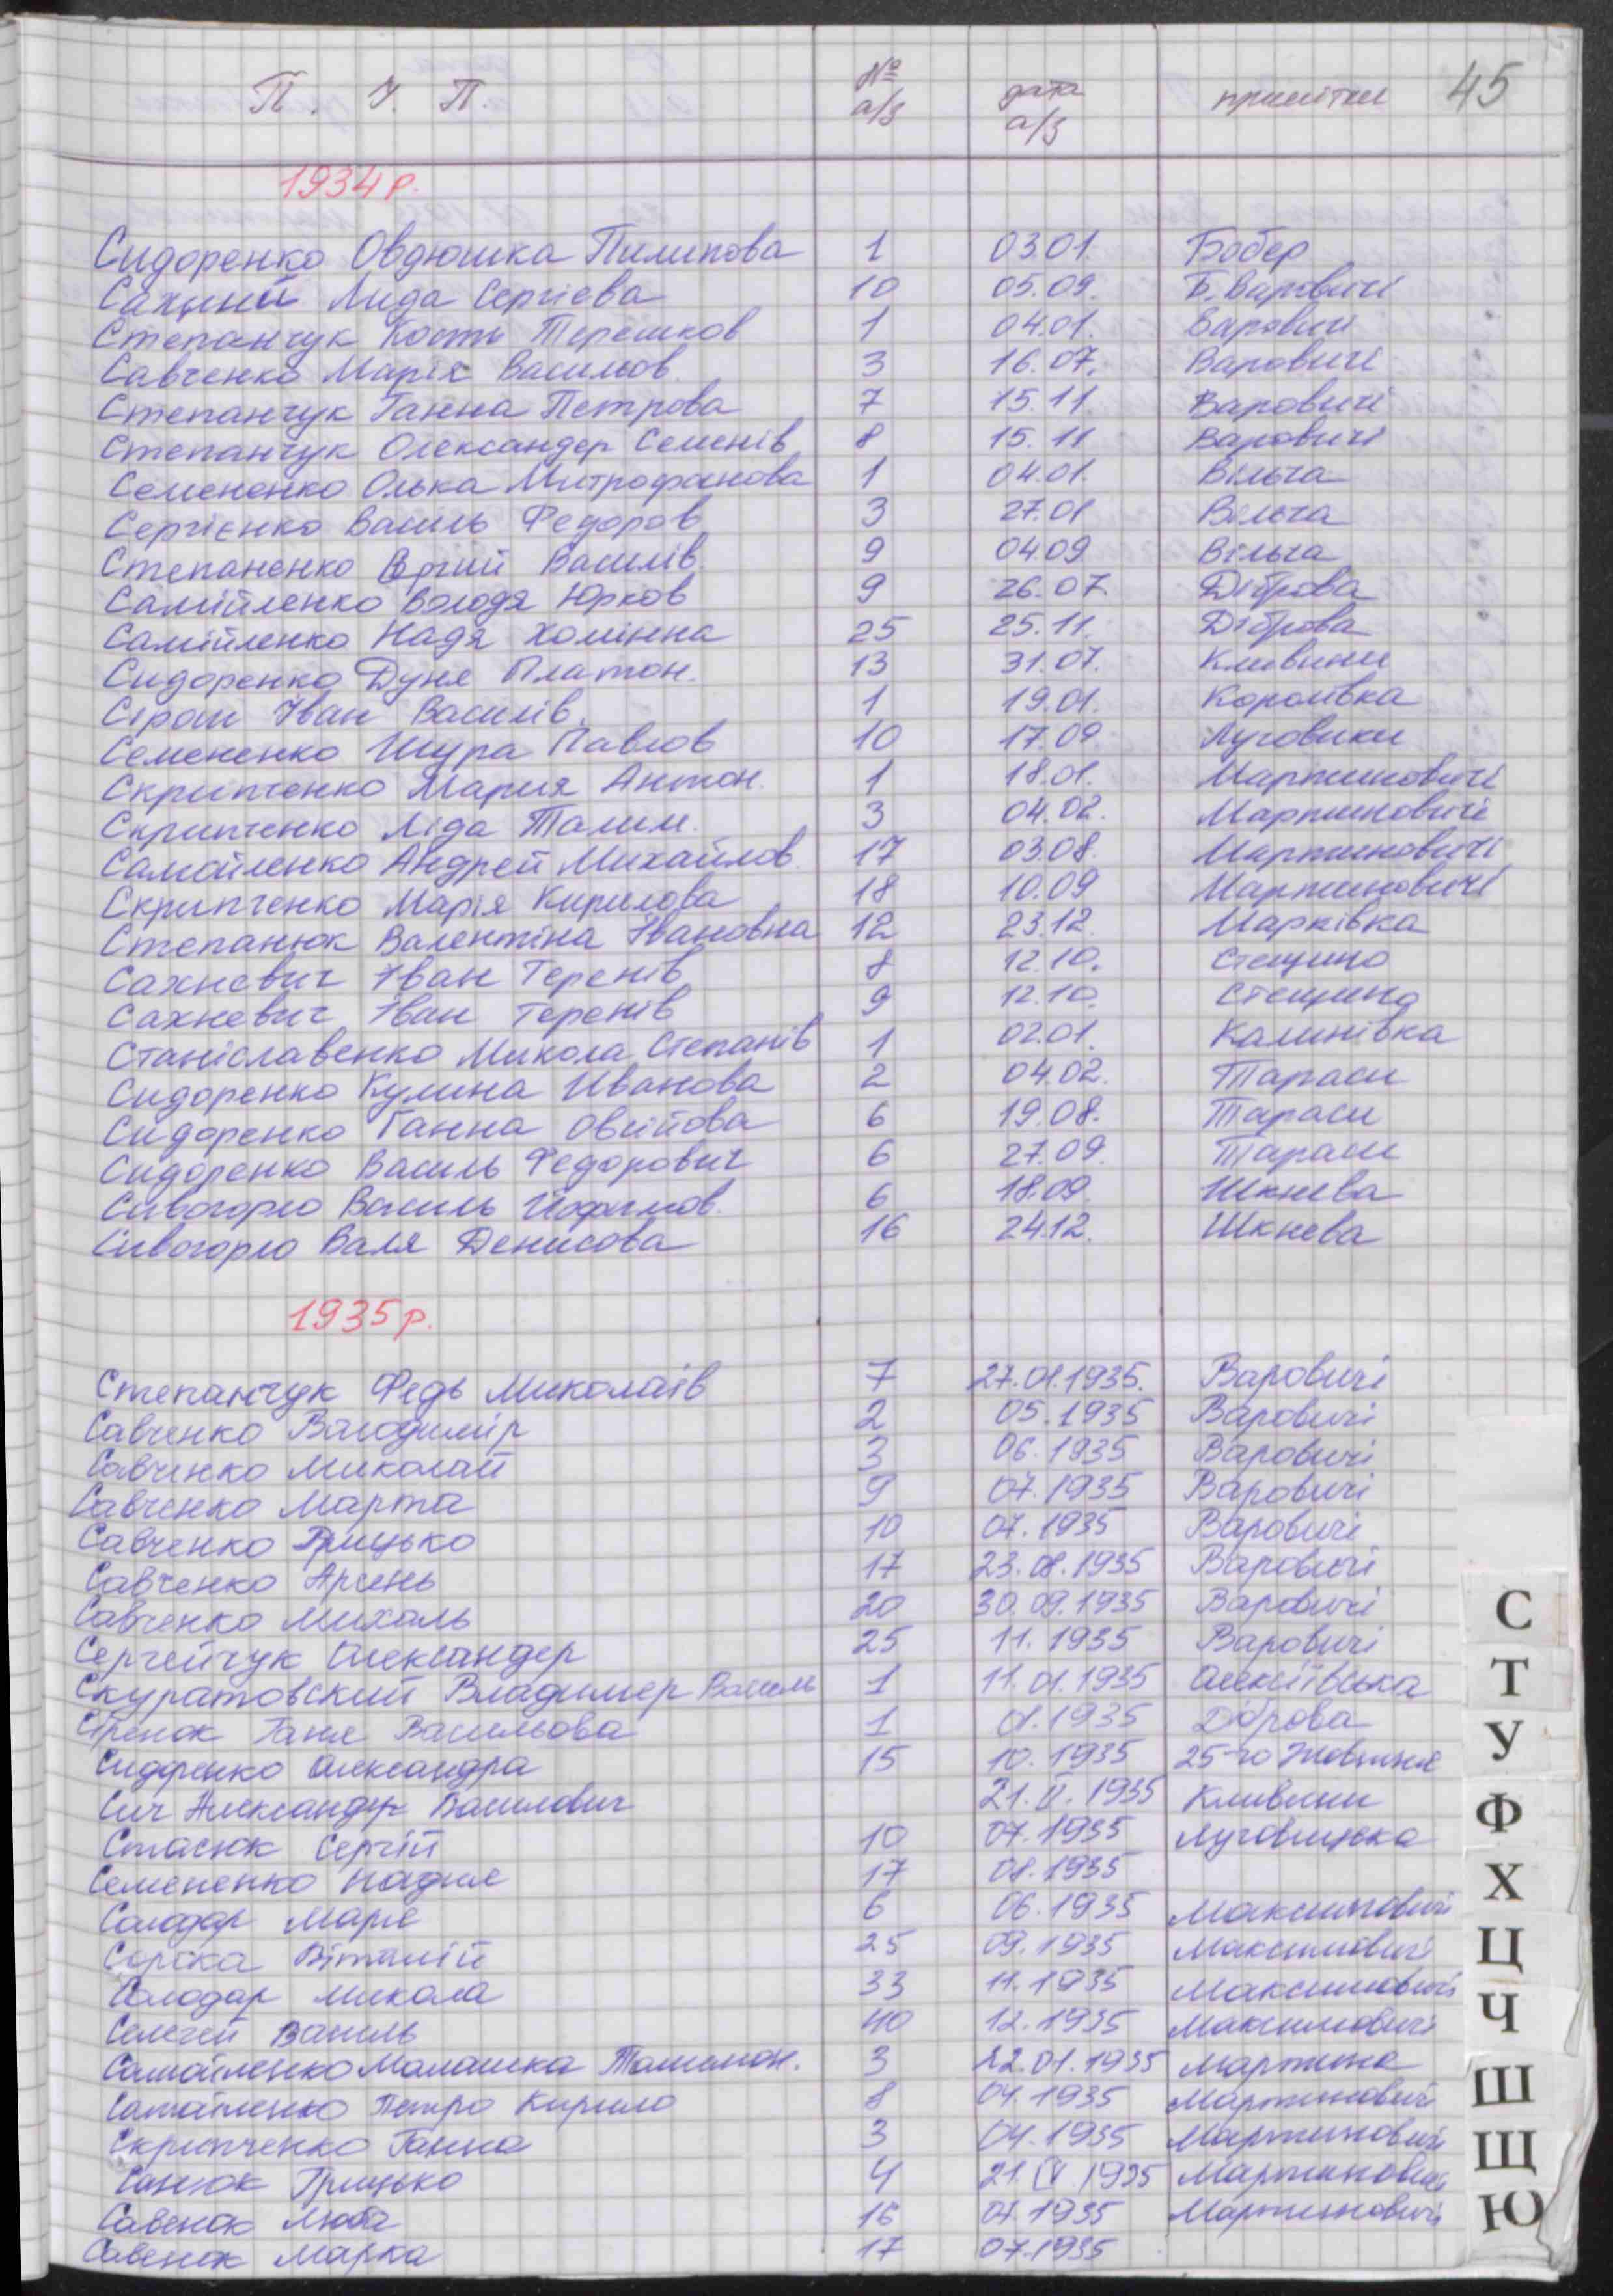 П. І. П. № а/з дата а/з примітки 45
1934 р.
Сидоренко Овдюшка Пилипова 1 03.01. Бобер
Сахций Лида Сергієва 10 05.09. Б. Варовичі
Степанчук Кость Терешков 1 04.01. Варовичі
Савченко Марія Васильов. 3 16.07. Варовичі
Степанчук Ганна Петрова 7 15.11. Варовичі
Степанчук Олександер Семенів 8 15.11 Варовичі
Семененко Олька Митрофанова 1 04.01. Вільча
Сергієнко Василь Федоров 3 27.01 Вільча
Степаненко Василів. 9 04.09 Вільча
Самійленко Володя Юрков 9 26.07. Діброва
Самійленко Надя Хомінна 25 25.11. Діброва
Сидоренко Дуня Платон. 13 31.07. Кливини
Сірош Іван Василів. 1 19.01. Королівка
Семененко Шура Павлов 10 17.09. Луговики
Скрипченко Мария Антон. 1 18.01. Мартиновичі
Скрипченко Ліда Талим. 3 04.02. Мартиновичі
Самойленко Андрей Михайлов. 17 03.08. Мартиновичі
Скрипченко Марія Кирилова 18 10.09 Мартиновичі
Степанюк Валентіна Івановна 12 23.12. Марківка
Сахневич Іван Теренів 8 12.10. Стещино
Сахневич Іван Теренів 9 12.10. Стещина
Станіславенко Микола Степанів 1 02.01. Калинівка
Сидоренко Кулина Иванова 2 04.02. Тараси
Сидоренко Ганна Овсійова 6 19.08. Тараси
Сидоренко Василь Федорович 6 27.09. Тараси
Сивогорло Василь Йофимов. 6 18.09. Шкнева
Сивогорло Валя Денисова 16 24.12. Шкнева
1935 р.
Степанчук Федь Миколаїв 7 27.01.1935. Варовичі
Савченко Володимір 2 05.1935 Варовичі
Савченко Миколай 3 06.1935 Варовичі
Савченко Марта 9 07.1935 Варовичі
Савченко Грицько 10 07.1935 Варовичі
Савченко Арсень 17 23.08.1935 Варовичі
Савченко Михаль 20 30.09.1935 Варовичі
Сергейчук Олександер 25 11.1935 Варовичі
Скуратовский Владимер Василь 1 11.01.1935 Олексіївська
Ганя Васильова 1 01.1935 Діброва
Сидоренко Олександра 15 10.1935 25-го Жовтня
Сич Александр Василович 21.II.1935 Кливини
Стасюк Сергій 10 07.1935 Луговицька
Семененко Надия 17 08.1935
Солодар Марія 6 06.1935 Максимовичі
Сорока Віталій 25 09.1935 Максимовичі
Солодар Микола 33 11.1935 Максимовичі
Селегей Василь 40 12.1935 Максимовичі
Самойленко Малашка Талимон. 3 22.01.1935 Мартина
Самойленко Петро Кирило 8 04.1935 Мартинович
Скрипченко Ганна 3 04.1935 Мартинович
Санюк Грицько 4 21.IV.1935 Мартинович
Савенок Люба 16 07.1935 Мартинович
Савенок Марка 17 07.1935
С
Т
У
Ф
Х
Ц
Ч
Ш
Щ
Ю